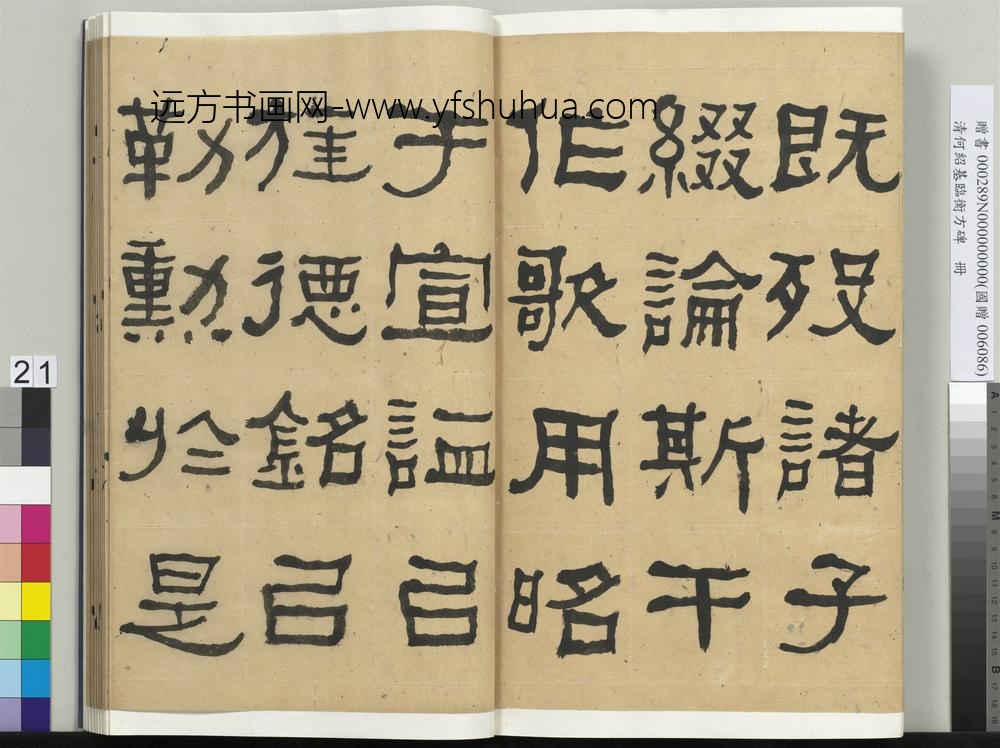 远方书画网-www.yfshuhua.com
既歿諸子
綴論斯干
作歌用昭
于宣謚㠯
旌德銘㠯
勒勳於是
贈書 000289N000000000(國贈 006086)
清何紹基臨衡方碑 冊
21
A 1 2 3 4 5 6 M 8 9 10 11 12 13 14 15 B 17 18 19